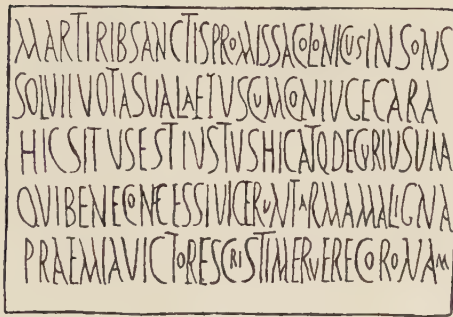 MARTIRIBSANCTISPROMISSACOLONICUSINSONS
SOLVIIVOTASUALAETUSCUMCONIUGECARA
HICSITUSESTIUSTUSHICATQDEGURIUSUNA
QUIBENECONFESSIVICERUNTARMAMALIGNA
PRAEMIAVICTORESCRISTIMERUERECORONAM